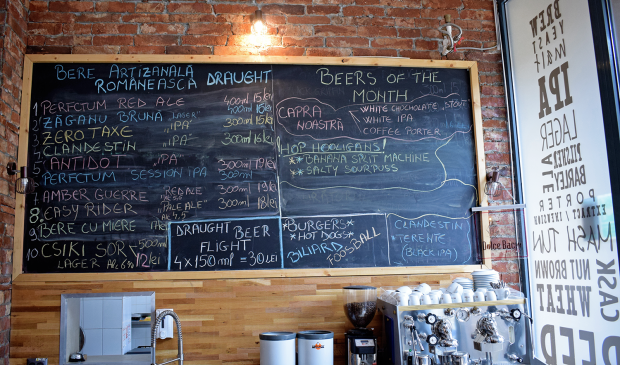 BERE ARTIZANALA
ROMÂNEASCĂ DRAUGHT
1 PERFCTUM RED ALE 400ml 15lei
2 ZĂGANU BRUNA "LAGER"
3 ZERO TAXE "IPA"
4 CLANDESTIN "IPA" 300ml 16lei
5 ANTIDOT "IPA"
6 PERFCTUM SESSION IPA 300ml
7 AMBER GUERRE RED ALE 300ml 19lei
8 EASY RIDER "PALE ALE" 300ml 19lei
9 BERE CU MIERE
10 CSIKI SÖR 500ml
LAGER 12lei
DRAUGHT BEER
FLIGHT
4 x 150ml = 30 LEI
BEERS OF THE
MONTH
CAPRA
NOASTRĂ
WHITE CHOCHOLATE STOUT
WHITE IPA
COFFEE PORTER
HOP HOOLIGANS!
** BANANA SPLIT MACHINE
** SALTY SOURPUSS
*BURGERS*
*HOT DOGS*
BILIARD FOOSBALL
CLANDESTIN
TERENTE
(BLACK IPA)
Dolce Bac
BREW
YEAST
MALT
IPA
LAGER
ALE
PILSNER
BARLEY
PORTER
EXTRACT / INFUSION
MASH TUN
NUT BROWN
WHEAT
CASK
BEER